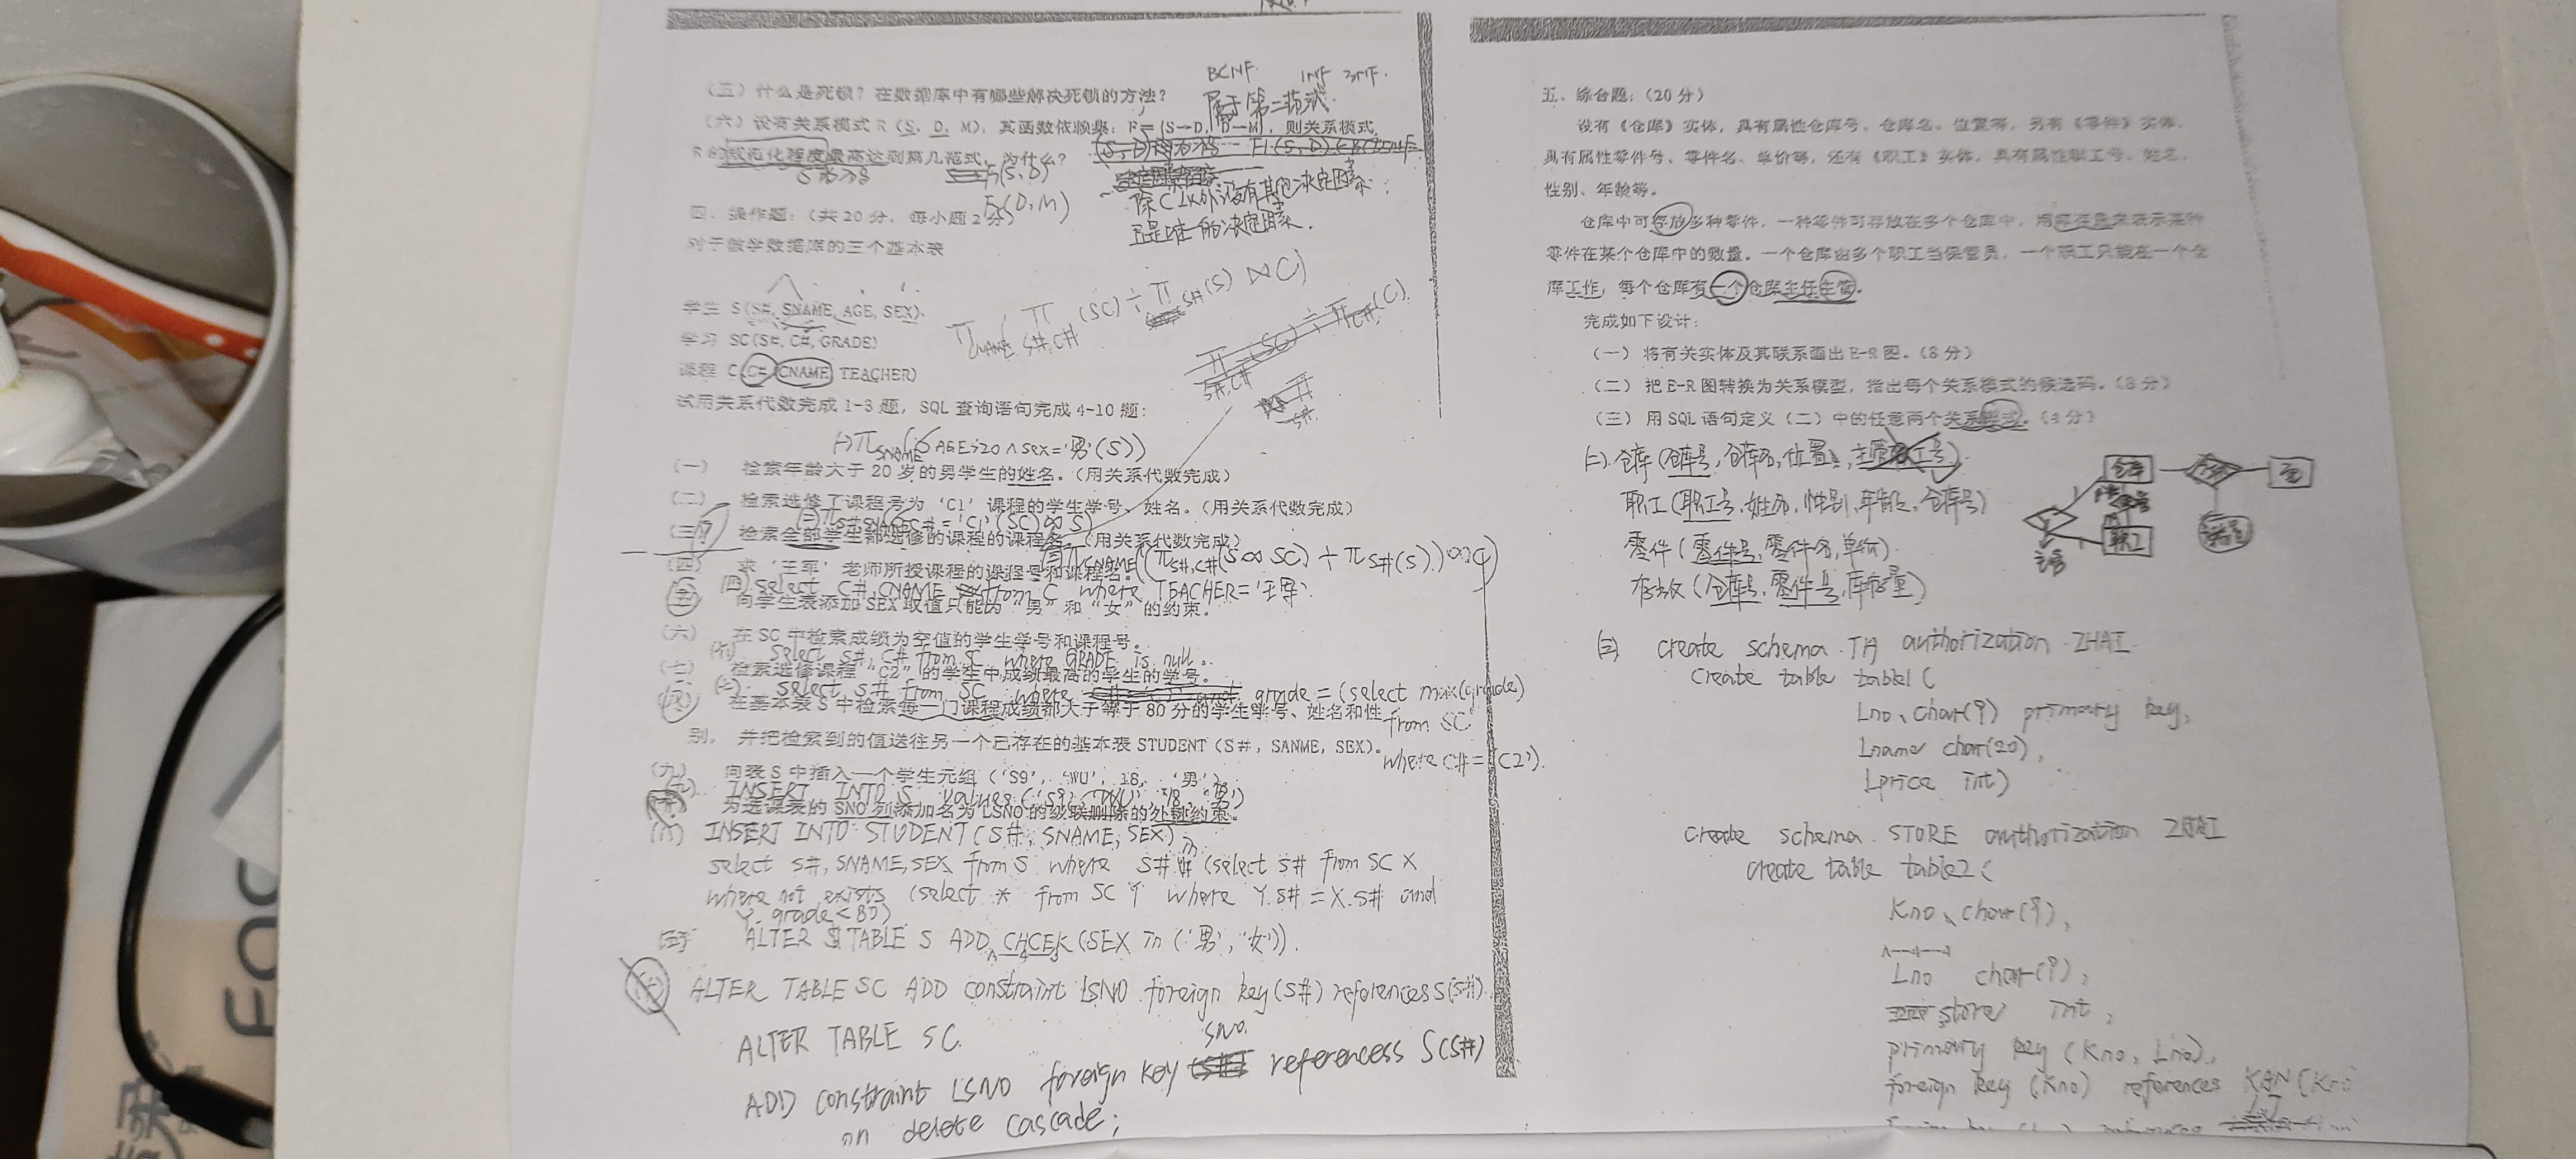 (五) 什么是死锁？在数据库中有哪些解决死锁的方法？
BCNF 1NF 2NF.
属于第二范式.
(六) 设有关系模式 R (S, D, M)，其函数依赖集：F={S→D, D→M}，则关系模式
R 的规范化程度最高达到第几范式，为什么？
S 的为码
(S, D)
F2(D, M)
除 C以外没有其他决定因素；
且是唯一的决定因素.
四、操作题：(共 20 分，每小题 2 分)
对于教学数据库的三个基本表
学生 S(S#, SNAME, AGE, SEX)
学习 SC(S#, C#, GRADE)
课程 C(C#, CNAME, TEACHER)
π CNAME ( π S#,C# (SC) ÷ π S#(S) ⋈ C)
试用关系代数完成 1-3 题，SQL 查询语句完成 4-10 题：
(一) π SNAME (σ AGE>20 ∧ sex='男'(S))
(一) 检索年龄大于 20 岁的男学生的姓名。(用关系代数完成)
(二) 检索选修了课程号为 'C1' 课程的学生学号、姓名。(用关系代数完成)
(三) 检索全部学生都选修的课程的课程名。(用关系代数完成)
π CNAME ((π S#,C#(S∞SC) ÷ π S#(S)) ∞ C)
(四) 求 '王平' 老师所授课程的课程号和课程名。
(四) select C#, CNAME from C where TEACHER='王平'.
向学生表添加 SEX 取值只能为 "男" 和 "女" 的约束。
(六) 在 SC 中检索成绩为空值的学生学号和课程号。
select S#, C# from SC where GRADE is null.
(七) 检索选修课程 "C2" 的学生中成绩最高的学生的学号。
(七) select S# from SC where grade = (select max(grade)
from SC
where C#='C2').
(八) 在基本表 S 中检索每一门课程成绩都大于等于 80 分的学生学号、姓名和性
别，并把检索到的值送往另一个已存在的基本表 STUDENT (S#, SANME, SEX)。
(九) 向表 S 中插入一个学生元组 ('S9', 'WU', 18, '男')。
INSERT INTO S values ('S9', 'WU', 18, '男')
为选课表的 SNO 列添加名为 LSNO 的级联删除的外键约束。
(八) INSERT INTO STUDENT (S#, SNAME, SEX)
select S#, SNAME, SEX from S where S# in (select S# from SC X
where not exists (select * from SC Y where Y.S# = X.S# and
Y.grade<80)
(五) ALTER TABLE S ADD CHCEK (SEX in ('男', '女')).
ALTER TABLE SC ADD constraint LSNO foreign key(S#) references S(S#).
ALTER TABLE SC.
ADD constraint LSNO foreign key SNO. referencess S(S#)
on delete cascade;
五、综合题：(20 分)
设有《仓库》实体，具有属性仓库号、仓库名、位置等，另有《零件》实体，
具有属性零件号、零件名、单价等，还有《职工》实体，具有属性职工号、姓名、
性别、年龄等。
仓库中可存放多种零件，一种零件可存放在多个仓库中，用库存量来表示某种
零件在某个仓库中的数量。一个仓库由多个职工当保管员，一个职工只能在一个仓
库工作，每个仓库有一个仓库主任主管。
完成如下设计：
(一) 将有关实体及其联系画出 E-R 图。(8 分)
(二) 把 E-R 图转换为关系模型，指出每个关系模式的候选码。(8 分)
(三) 用 SQL 语句定义 (二) 中的任意两个关系模式。(4 分)
(二). 仓库 (仓库号, 仓库名, 位置,
职工 (职工号, 姓名, 性别, 年龄, 仓库号)
零件 (零件号, 零件名, 单价).
存放 (仓库号, 零件号, 库存量)
仓库
职工
(三) create schema TH authorization ZHAI
create table table1(
Lno char(9) primary key,
Lname char(20),
Lprice int)
create schema STORE authorization ZHAI
create table table2(
Kno char(9),
Lno char(9),
store int,
primary key (Kno, Lno),
foreign key (Kno) references